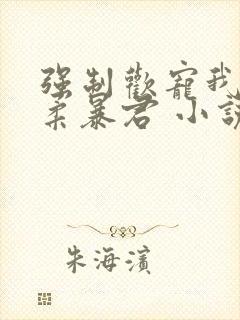 强制歡寵我
柔暴君 小説
朱海濱